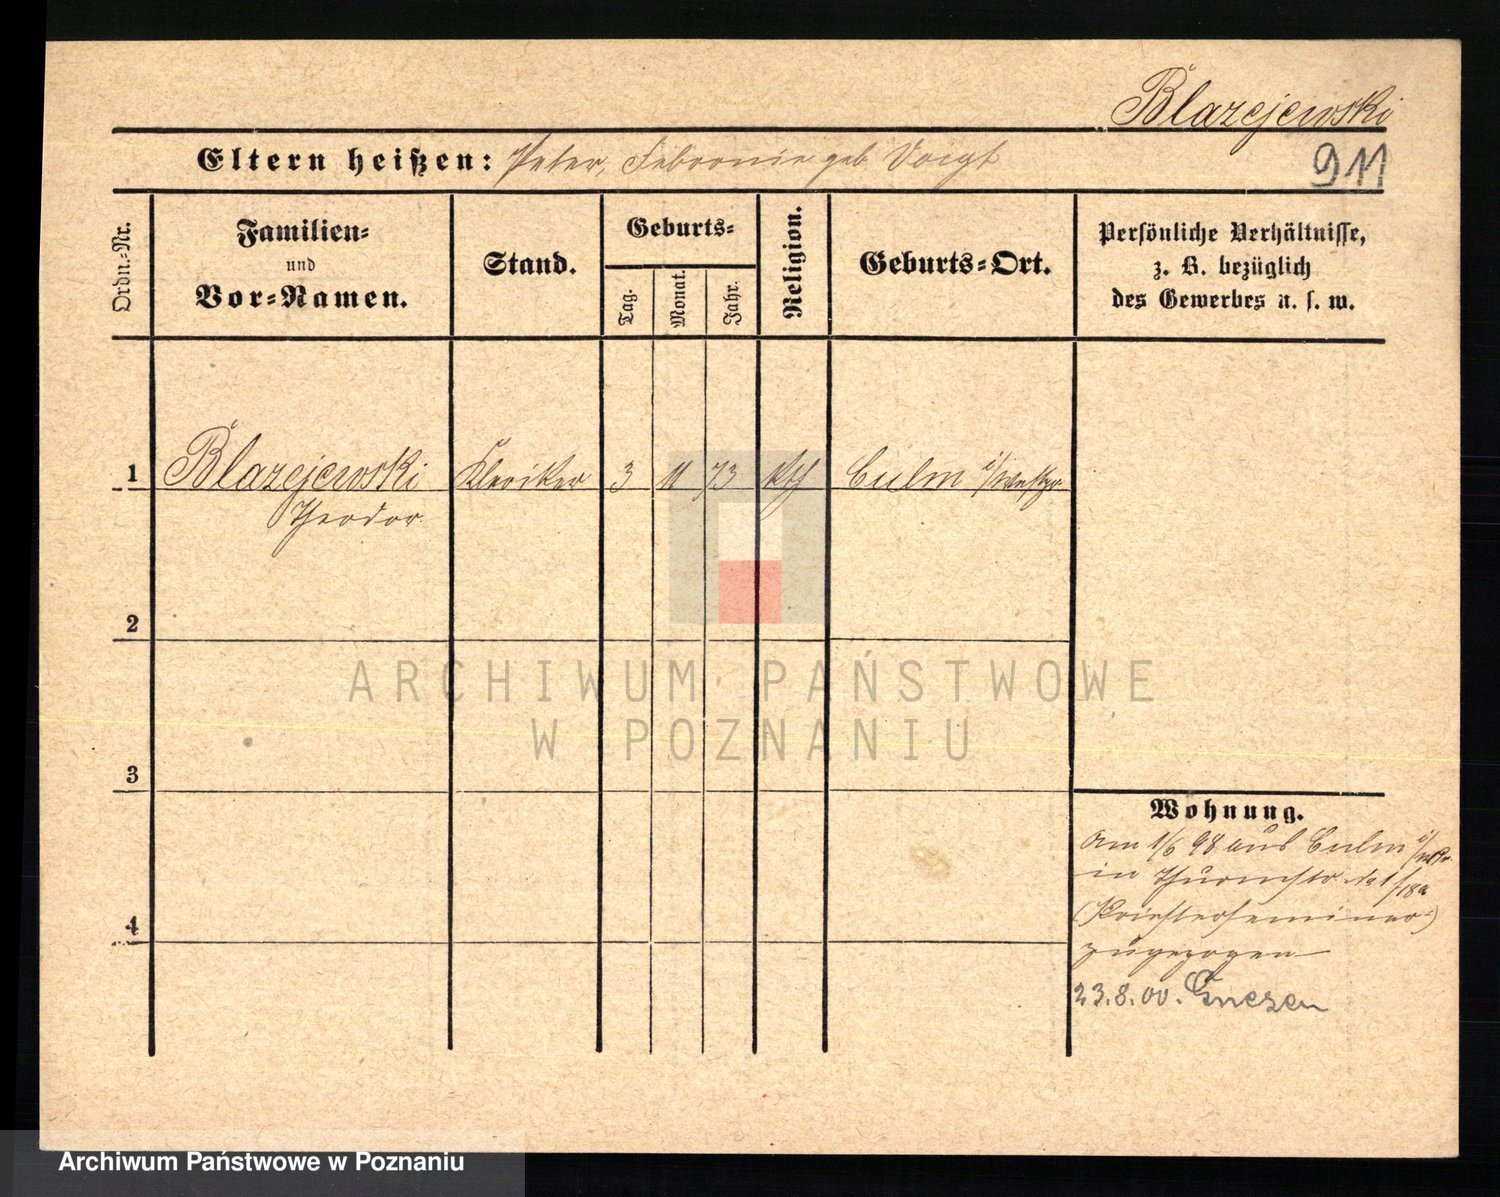 Blazejewski
Eltern heißen: Peter, Febronie geb Voigt
911
Ordn.-Nr.
Familien-
und
Vor-Namen.
Stand.
Geburts-
Tag.
Monat.
Jahr.
Religion.
Geburts-Ort.
Persönliche Verhältnisse,
z. B. bezüglich
des Gewerbes u. s. w.
1 Blazejewski Kleriker 3 11 73 kth Culm i/Westpr
Theodor
2
3
4
Wohnung.
Am 1/6 98 aus Culm
in Thurmstr.
(Priesterseminar)
zugezogen
23.8.00. Gnesen
ARCHIWUM PAŃSTWOWE
W POZNANIU
Archiwum Państwowe w Poznaniu